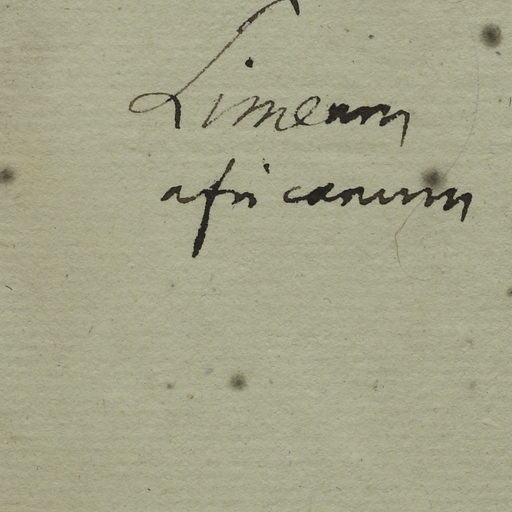 Limeum
africanum